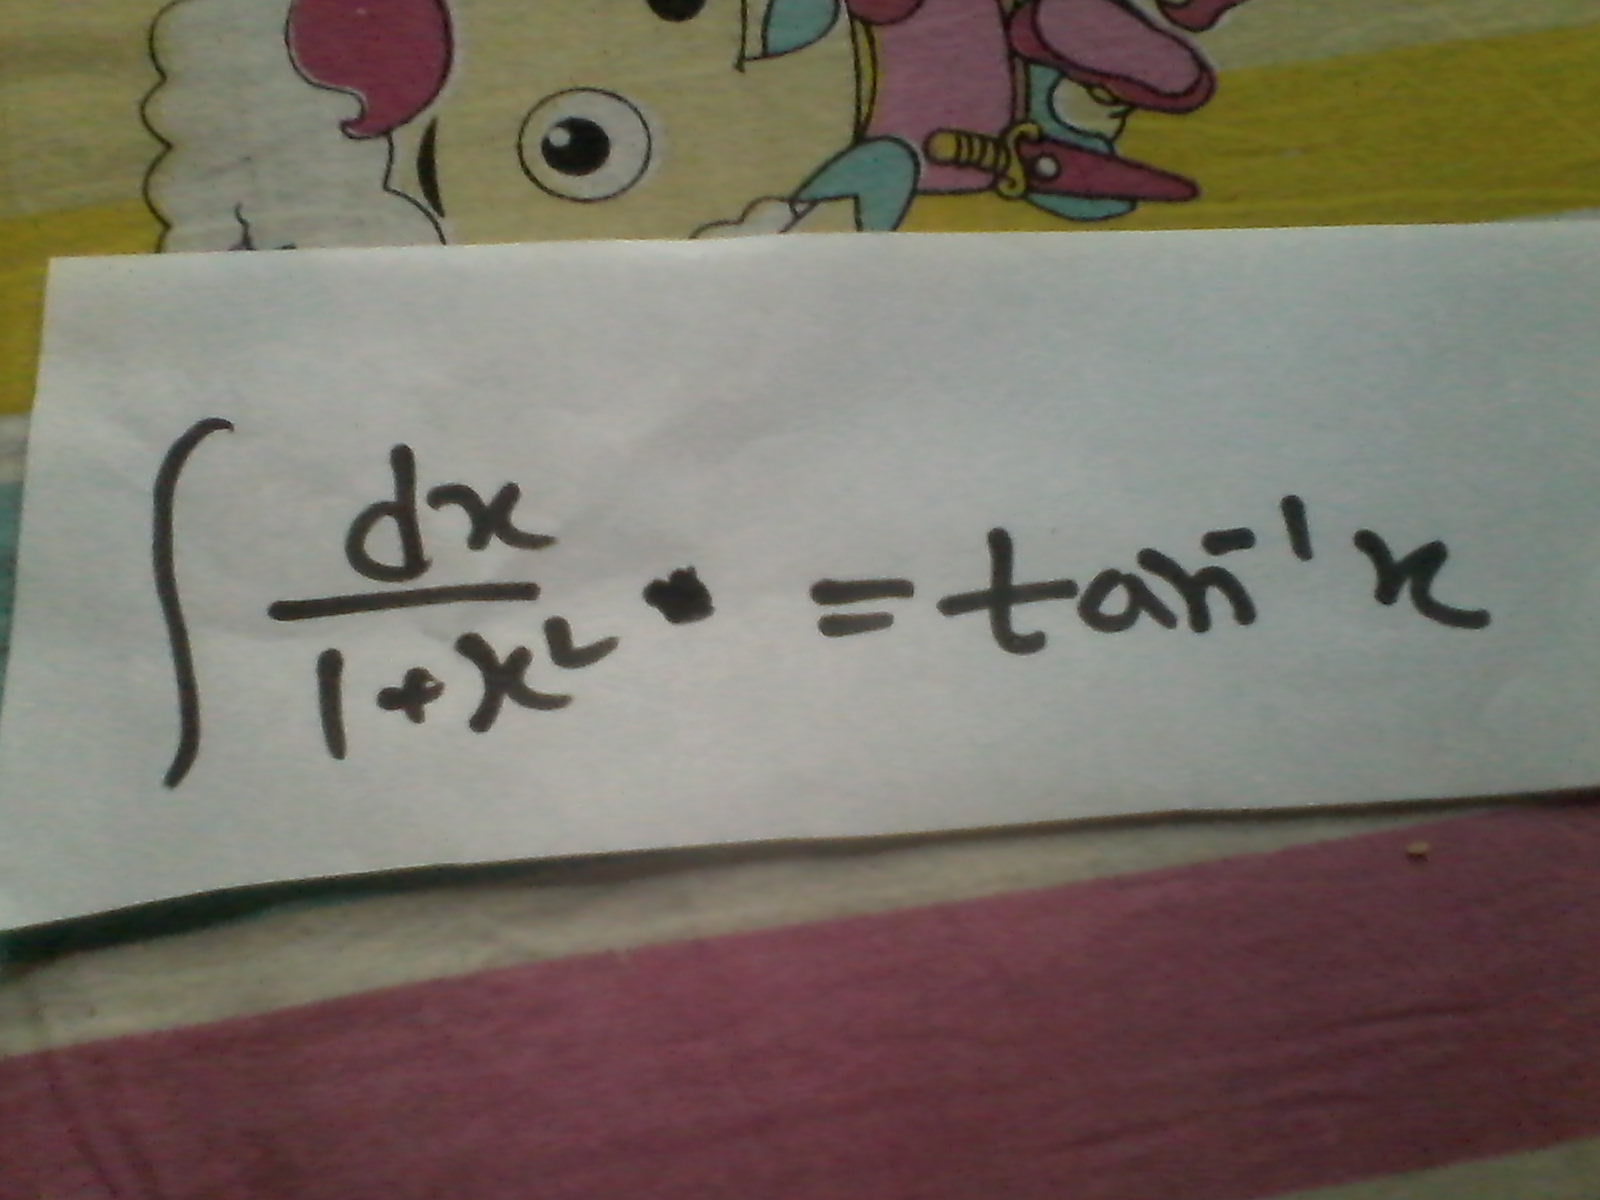 ∫ dx/(1+x²) = tan⁻¹ x